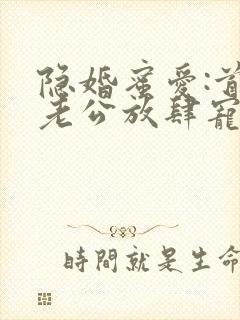 隐婚蜜爱:首
老公放肆寵
時間就是生命